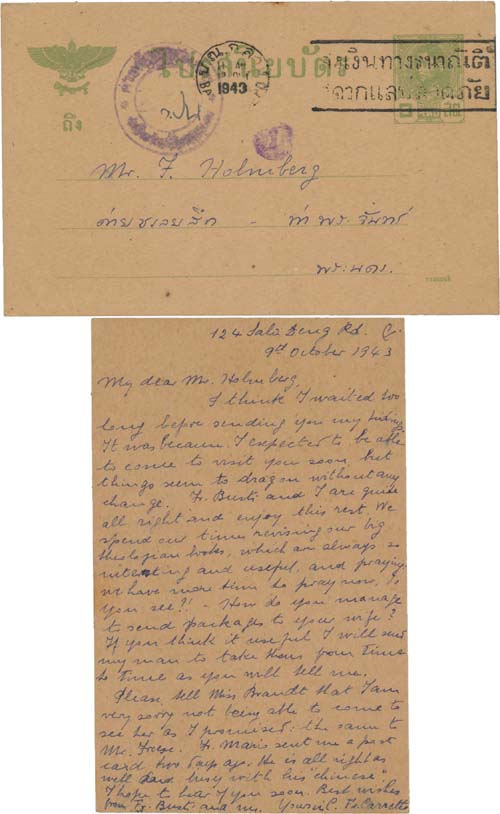 ไปรษณียบัตร
1943
ส่งเงินทางธนาณัติ
สะดวกและปลอดภัย
ถึง
Mr. F. Holmberg
ค่ายชเลยศึก - ท่าพระจันทร์
พระนคร.
124 Sala Deng Rd.
9th October 1943
My dear Mr. Holmberg,
I think I waited too
long before sending you my
It was because I expected to be able
to come to visit you soon, but
things seem to drag on without any
change. Fr. Busti and I are quite
all right and enjoy this rest. We
spend our time revising our big
theologian books, which are always so
interesting and useful, and praying.
We have more time to pray now,
you see?! - How do you manage
to send packages to your wife?
If you think it useful I will send
my man to take them from time
to time as you will tell me.
Please, tell Miss Brandt that I am
very sorry not being able to come to
see her as I promised: the same to
Mr. Fr. Mario sent me a post
card two days ago. He is all right as
well and busy with his "chinese"
I hope to hear you soon. Best wishes
from Fr. Busti and me. Yours i. C. Fr. Carretto